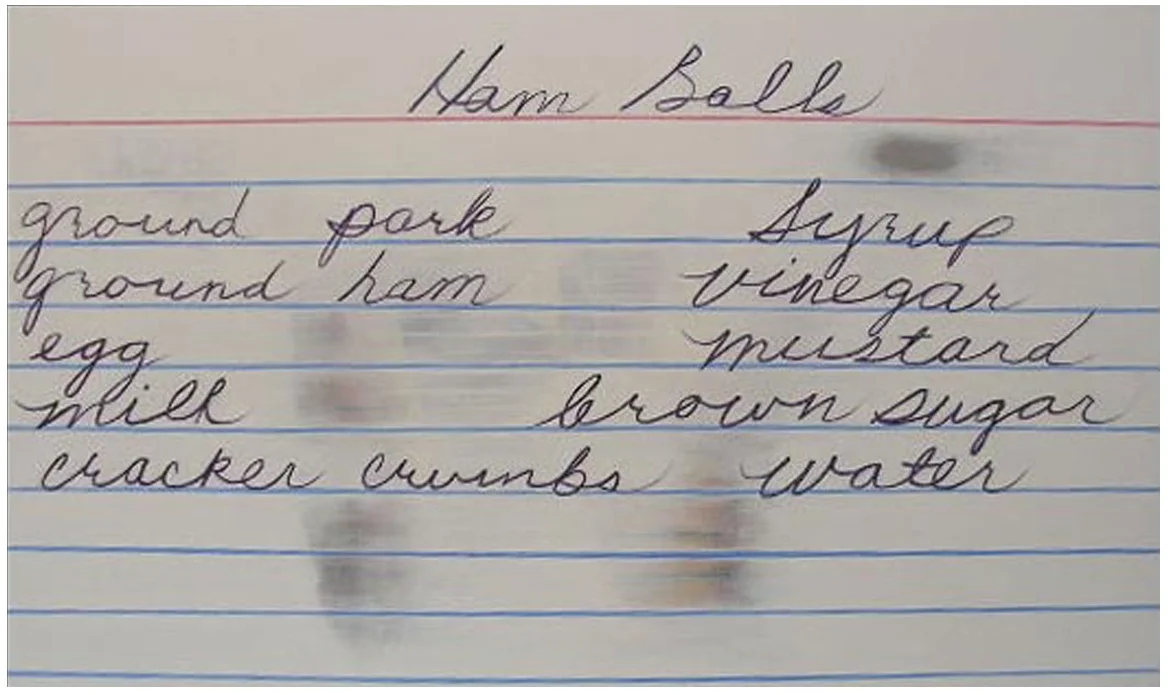 Ham Balls
ground pork Syrup
ground ham vinegar
egg mustard
milk brown sugar
cracker crumbs water